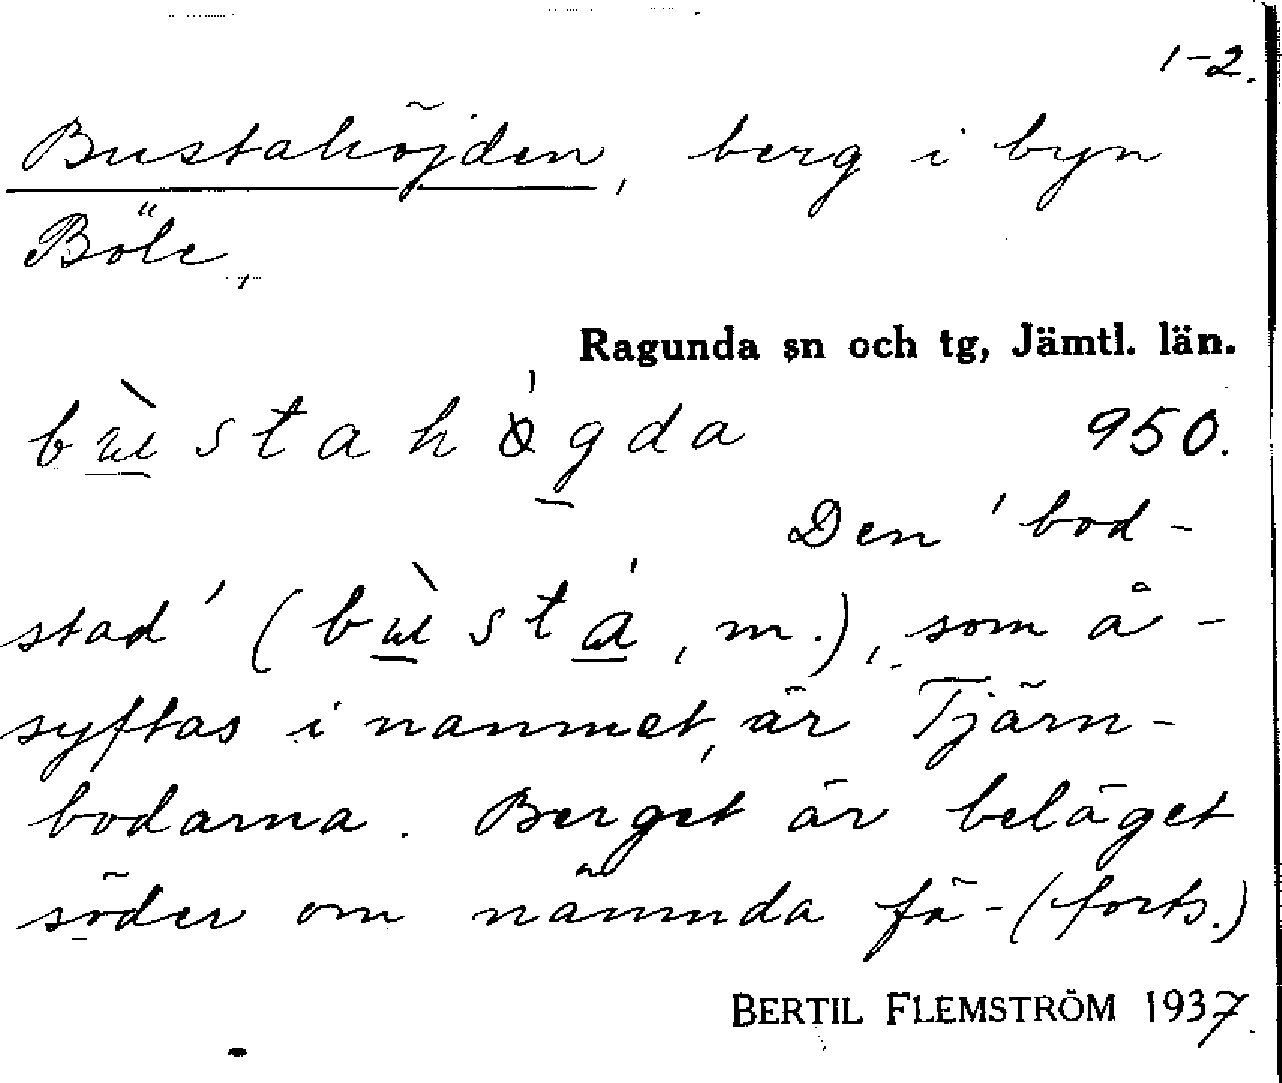 1-2.
Bustahöjden, berg i byn
Böle,
Ragunda sn och tg, Jämtl. län.
bùstahögda 950.
Den 'bod-
stad' (bùstá, m.), som å-
syftas i namnet, är Tjärn-
bodarna. Berget är beläget
söder om nämnda fä- (forts.)
BERTIL FLEMSTRÖM 1937